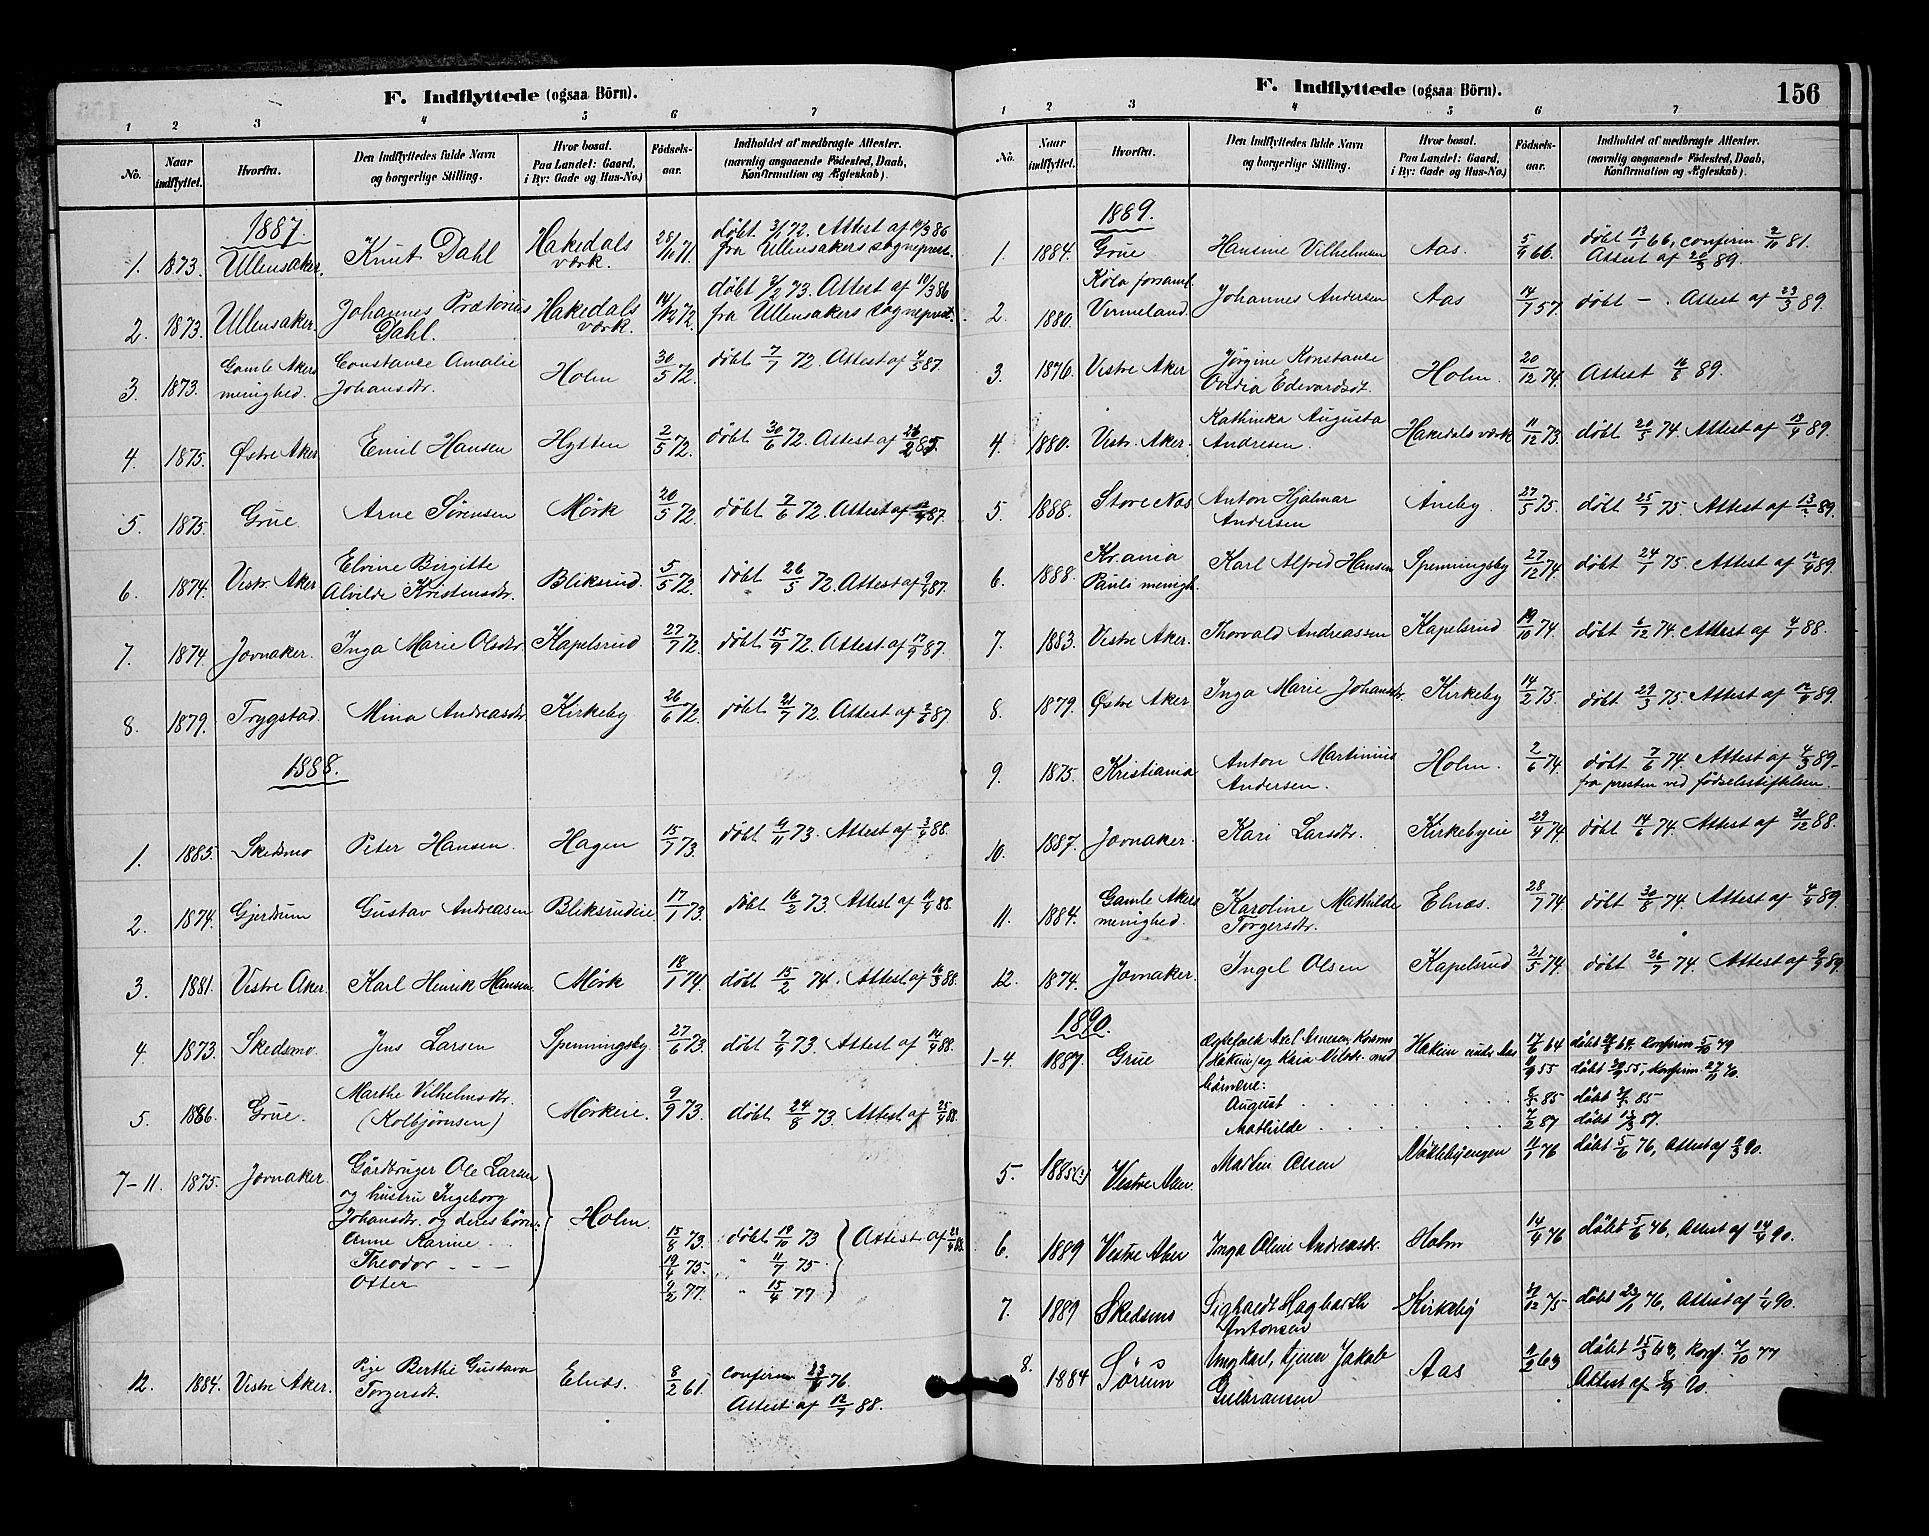 F. Indflyttede (ogsaa Börn).
1 2 3 4 5 6 7
No. Naar indflyttet. Hvorfra. Den Indflyttedes fulde Navn og borgerlige Stilling. Hvor bosat. Paa Landet: Gaard, i By: Gade og Hus-No.) Födsels-aar. Indholdet af medbragte Attester. (navnlig angaaende Födested, Daab, Konfirmation og Ægteskab).
1887.
1. 1873. Ullensaker. Knut Dahl Hakedals værk. 28/11 71. døbt 3/1 72. Attest af 19/3 86
fra Ullensakers sogneprest.
2. 1873. Ullensaker. Johannes Prætorius Dahl. Hakedals værk. 14/12 72. døbt 2/2 73. Attest af 19/3 86
fra Ullensakers sogneprest.
3. 1873. Gamle Akers menighed. Constance Amalie Johansdtr. Holm 30/5 72. døbt 7/7 72. Attest af 4/5 87.
4. 1875. Østre Aker Emil Hansen Hytten 2/5 72. døbt 30/6 72. Attest af 26/2 85.
5. 1875. Grue. Arne Sørensen Mörk 20/5 72. døbt 7/6 72. Attest af 87.
6. 1874. Vestr. Aker Elvine Birgitte Alvilde Kristensdtr. Bliksrud. 5/5 72. døbt 26/5 72. Attest af 9/9 87.
7. 1874 Jovnaker. Inga Marie Olsdtr. Kapelsrud 27/7 72. døbt 15/9 72. Attest af 17/9 87.
8. 1879. Trygstad. Mina Andreasdtr. Kirkeby 26/6 72. døbt 21/7 72. Attest af 2/6 87
1888.
1. 1885. Skedsmo Peter Hansen. Hagen 15/7 73. døbt 9/11 73. Attest af 3/4 88.
2. 1874. Gjerdrum Gustav Andreasen Bliksrudeie 17/1 73. døbt 16/2 73. Attest af 11/4 88.
3. 1881. Vestre Aker. Karl Henrik Hansen Mörk 18/1 74. døbt 15/2 74. Attest af 16/3 88.
4. 1873. Skedsmo. Jens Larsen Spenningsby. 27/6 73. døbt 7/9 73. Attest af 14/4 88.
5. 1886. Grue. Marthe Vilhelmsdtr. (Kolbjørnsen) Mörkeie. 9/9 73. døbt 24/8 73. Attest af 25/4 88.
7-11. 1875. Jovnaker Gårdbruger Ole Larsen
og hustru Ingeborg
Johansdtr. og deres börn: Holm.
Anne Karine 15/8 73. døbt 19/10 73 Attest af 21/4 88.
Theodor 19/4 75. " 11/7 75
Otter 9/2 77. " 15/4 77
12. 1884. Vestre Aker. Pige Berthe Gustava Torgersdt. Elnes. 8/2 61. confirm. 23/4 76.
Attest af 12/7 88.
F. Indflyttede (ogsaa Börn). 156
1 2 3 4 5 6 7
No. Naar indflyttet. Hvorfra. Den Indflyttedes fulde Navn og borgerlige Stilling. Hvor bosat. Paa Landet: Gaard, i By: Gade og Hus-No.) Födsels-aar. Indholdet af medbragte Attester. (navnlig angaaende Födested, Daab, Konfirmation og Ægteskab).
1889.
1. 1884. Grue Hansine Vilhelmsen Aas. 5/9 66. døbt 13/1 66, confirm. 2/10 81.
Attest af 20/3 89.
2. 1880. Köla forsaml. Vermeland. Johannes Andersen Aas 14/7 57. døbt - . Attest af 23/3 89.
3. 1876. Vestre Aker Jörgine Konstance Ovidia Edevardsdt. Holm. 20/12 74. Attest 16/8 89.
4. 1880. Vestr. Aker. Kathinka Augusta Andresen. Hakedals værk 11/12 73. døbt 20/5 74. Attest af 12/4 89.
5. 1888. Store Nas Anton Hjalmar Andersen Åneby. 27/5 75. døbt 25/7 75. Attest af 13/2 89.
6. 1888. Kr.ania Pauls menigh. Karl Alfred Hansen Spenningsby 27/12 74. døbt 24/1 75. Attest af 12/4 89.
7. 1883. Vestre Aker. Thorvald Andreassen Kapelsrud 19/10 74. døbt 6/12 74. Attest af 4/7 88.
8. 1879. Østre Aker Inga Marie Johansdtr. Kirkeby 14/2 75. døbt 29/3 75. Attest af 12/4 89.
9. 1875. Kristiania Anton Martinius Andersen. Holm. 2/6 74. døbt 7/6 74. Attest af 4/5 89-
fra presten ved fødselsstiftelsen.
10. 1887. Jovnaker. Kari Larsdtr. Kirkebyeie 29/4 74. døbt 14/6 74. Attest af 31/12 88.
11. 1884. Gamle Akers menighed. Karoline Mathilde Torgersdtr. Elnæs. 28/7 74. døbt 30/8 74. Attest af 4/4 89.
12. 1874. Jovnaker. Ingel Olsen Kapelsrud 21/5 74. døbt 26/7 74. Attest af 9/9 89.
1890.
1-4 1887. Grue Ægtefolk Axel (Hakein) og Karia med Hakein under Aas 17/6 64 døbt 64. Konfirm 5/10 79
börnene: 9/9 55 døbt 55, Konfirm. 70.
August 85 døbt 85
Mathilde 7/2 87 døbt 13/3 87.
5. 1885(?) Vestre Aker. Martin Olsen 76 døbt 5/6 76, Attest af 90.
6. 1889 Vestre Aker Inga Oline Andreasdtr. Holm 14/4 76 døbt 5/6 76, Attest af 14/4 90.
7. 1889 Skedsmo Hagbarth Antonsen Kirkeby 75 døbt 23/1 76, Attest af 1/4 90.
8. 1884 Sørum Ungkarl, tjener Jakob Gulbransen Aas 63 døbt 15/3 63, Konf. 7/10 77
Attest af 90.